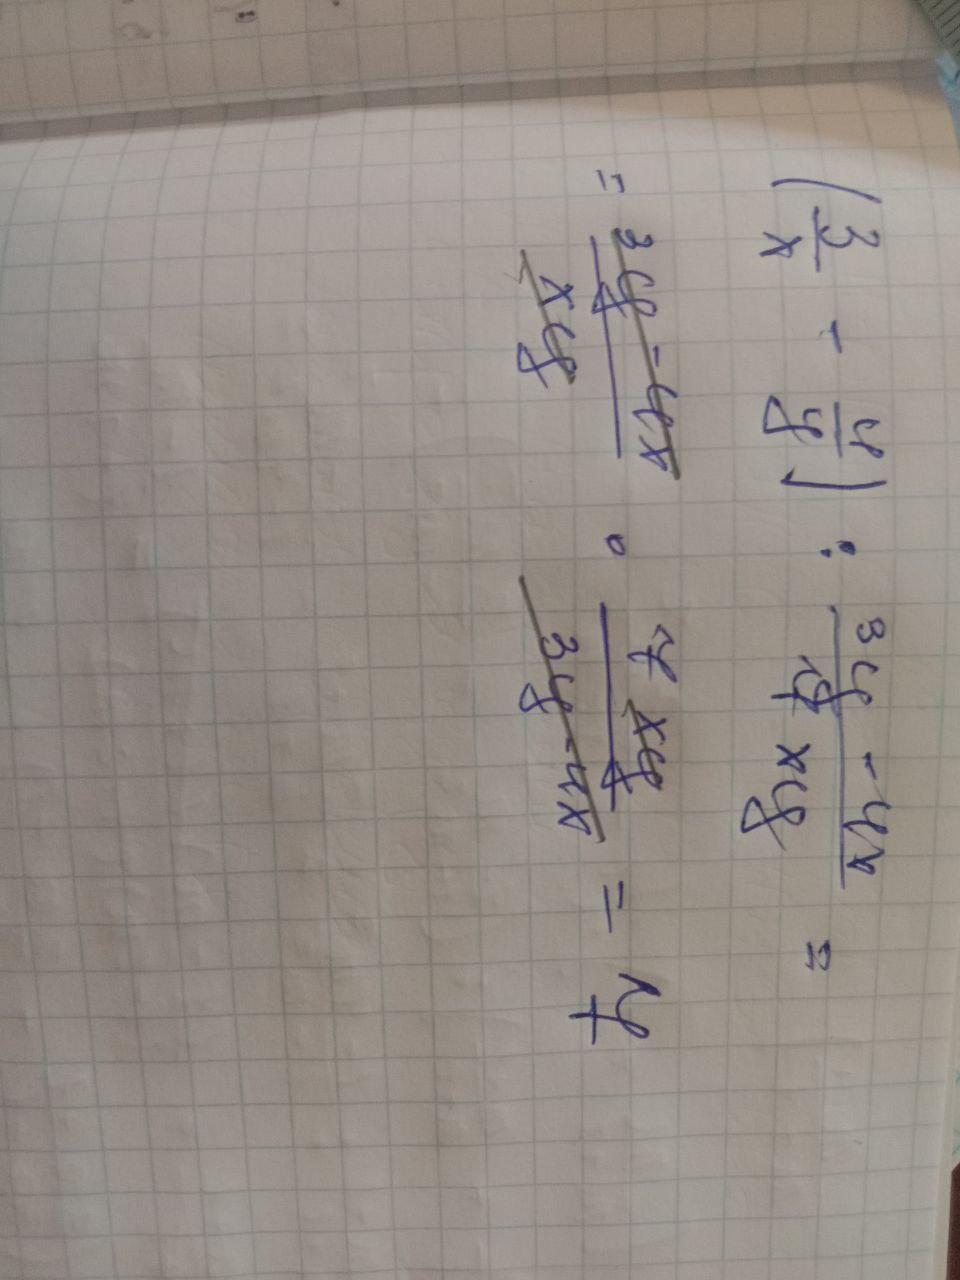 (3/x - 4/y) : (3y - 4x)/(7xy) =
= (3y - 4x)/(xy) · (7xy)/(3y - 4x) = 7